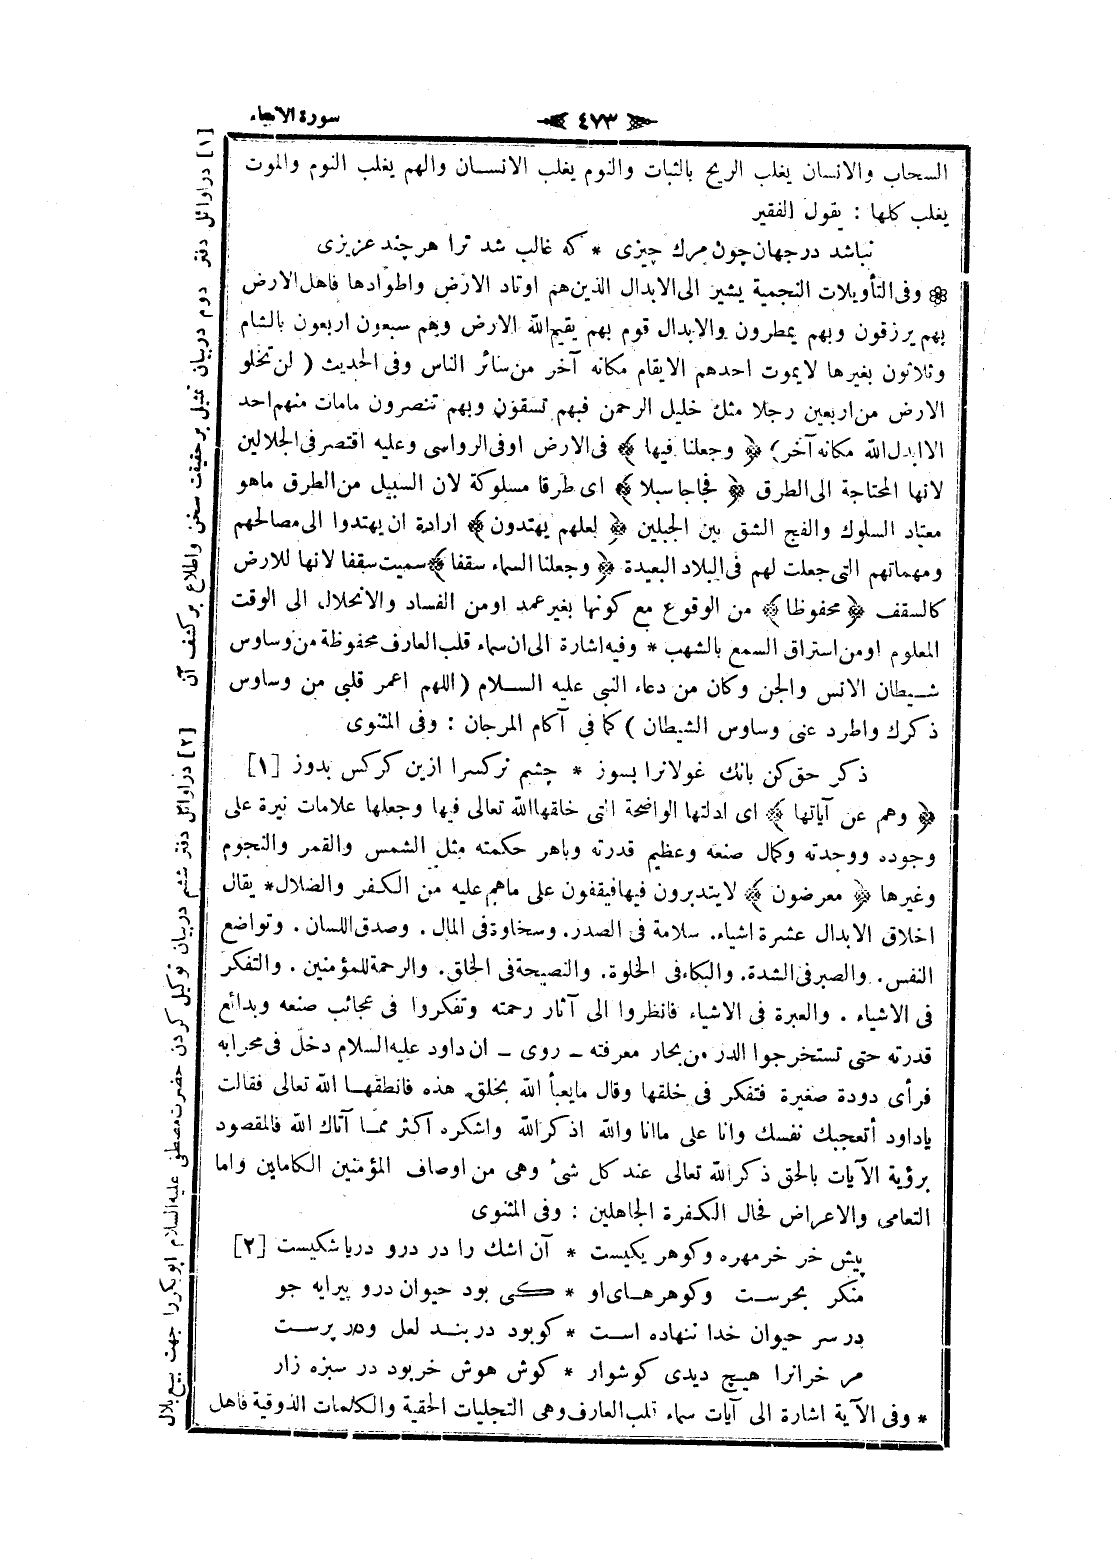 سورة الانبياء
٤٧٣
السحاب والانسان يغلب الريح بالثبات والنوم يغلب الانسان والهم يغلب النوم والموت
يغلب كلها : يقول الفقير
نباشد درجهان چون مرك چيزى * كه غالب شد ترا هرچند عزيزى
وفى التأويلات النجمية يشير الى الابدال الذين هم اوتاد الارض واطوادها فاهل الارض
بهم يرزقون وبهم يمطرون والابدال قوم بهم يقيم الله الارض وهم سبعون اربعون بالشام
وثلاثون بغيرها لا يموت احدهم الا يقام مكانه آخر من سائر الناس وفى الحديث ( لن تخلو
الارض من اربعين رجلا مثل خليل الرحمن فبهم تسقون وبهم تنصرون مامات منهم احد
الا ابدل الله مكانه آخر ) ﴿ وجعلنا فيها ﴾ فى الارض اوفى الرواسى وعليه اقتصر فى الجلالين
لانها المحتاجة الى الطرق ﴿ فجاجا سبلا ﴾ اى طرقا مسلوكة لان السبيل من الطرق ماهو
معتاد السلوك والفج الشق بين الجبلين ﴿ لعلهم يهتدون ﴾ ارادة ان يهتدوا الى مصالحهم
ومهماتهم التى جعلت لهم فى البلاد البعيدة ﴿ وجعلنا السماء سقفا ﴾ سميت سقفا لانها للارض
كالسقف ﴿ محفوظا ﴾ من الوقوع مع كونها بغير عمد اومن الفساد والانحلال الى الوقت
المعلوم اومن استراق السمع بالشهب * وفيه اشارة الى ان سماء قلب العارف محفوظة من وساوس
شيطان الانس والجن وكان من دعاء النبى عليه السلام ( اللهم اعمر قلبى من وساوس
ذكرك واطرد عنى وساوس الشيطان ) كما فى آكام المرجان : وفى المثنوى
ذكر حق كن بانك غولانرا بسوز * چشم نركسرا ازين كركس بدوز [١]
﴿ وهم عن آياتها ﴾ اى ادلتها الواضحة التى خلقها الله تعالى فيها وجعلها علامات نيرة على
وجوده ووحدته وكمال صنعه وعظيم قدرته وباهر حكمته مثل الشمس والقمر والنجوم
وغيرها ﴿ معرضون ﴾ لا يتدبرون فيها فيقفون على ماهم عليه من الكفر والضلال * يقال
اخلاق الابدال عشرة اشياء . سلامة فى الصدر . وسخاوة فى المال . وصدق اللسان . وتواضع
النفس . والصبر فى الشدة . والبكاء فى الخلوة . والنصيحة فى الخلق . والرحمة للمؤمنين . والتفكر
فى الاشياء . والعبرة فى الاشياء فانظروا الى آثار رحمته وتفكروا فى عجائب صنعه وبدائع
قدرته حتى تستخرجوا الدر من بحار معرفته ـ روى ـ ان داود عليه السلام دخل فى محرابه
فرأى دودة صغيرة فتفكر فى خلقها وقال مايعبأ الله بخلق هذه فانطقها الله تعالى فقالت
ياداود أتعجبك نفسك وانا على ماانا والله اذكر الله واشكره اكثر مما آتاك الله فالمقصود
برؤية الآيات بالحق ذكر الله تعالى عند كل شئ وهى من اوصاف المؤمنين الكاملين واما
التعامى والاعراض فحال الكفرة الجاهلين : وفى المثنوى
پيش خر خرمهره وكوهر يكيست * آن اشك را در درو دريا شكيست [٢]
منكر بحرست وكوهرهاى او * كى بود حيوان درو پيرايه جو
در سر حيوان خدا ننهاده است * كوبود دربند لعل ودر پرست
مر خرانرا هيچ ديدى كوشوار * كوش هوش خربود در سبزه زار
* وفى الآية اشارة الى آيات سماء قلب العارف وهى التجليات الحقية والكلمات الذوقية فاهل
[١] دراوائل دفتر دوم دربيان تمثيل برحقيقت سخن واطلاع بركشف آن
[٢] دراوائل دفتر ششم دربيان توكيل كردن حضرت مصطفى عليه السلام ابوبكررا جهت بيع بلال